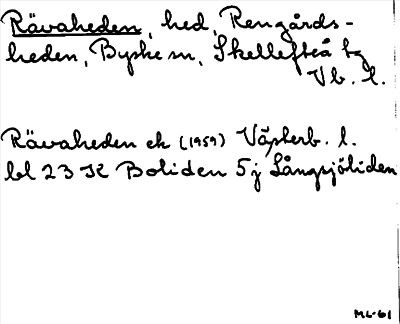 Rävaheden, hed, Rengårds-
heden, Byske sn, Skellefteå tg
Vb. l.
Rävaheden ek (1959) Västerb. l.
bl 23 K Boliden 5j Långsjöliden
ML-61